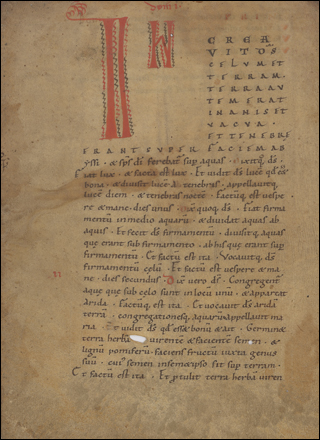 IN CREA
VIT DS̄
CELUM ET
TERRAM.
TERRA AU
TEM ERAT
INANIS ET
VACUA.
ET TENEBRE
ERANT SUPER FACIEM AB
yssi · & sp̄s dn̄i ferebat̄ sup aquas ·
lux · & facta est lux · Et vidit ds̄ lucē qđ eēt
bona · & divisit lucē a tenebris · appellavitq;
lucē diem · & tenebras noctē · Factūq; est vespe
re & mane · dies unus · quoq; ds̄ · Fiat firma
mentū in medio aquarū · & dividat aquas ab
aquis · Et fecit ds̄ firmamentū · divisitq; aquas
que erant sub firmamento · ab his que erant sup
firmamentū · Et factū est ita · Vocavitq; ds̄
firmamentū celū · Et factū est vespere & ma
ne · dies secundus · Dix̄ vero ds̄ · Congregent̄
aque que sub celo sunt in locū unū · & appareat
arida · Factūq; est ita · Et vocavit ds̄ aridā
terrā · congregationesq; aquarū appellavit ma
ria · Et vidit ds̄ qđ eēt bonū & ait · Germinet
terra herbā virentē & facientē semen · &
lignū pomiferū faciens fructū iuxta genus
suū · cui semen in semetipso sit sup terram ·
Et factū est ita · Et ptulit terra herbā viren